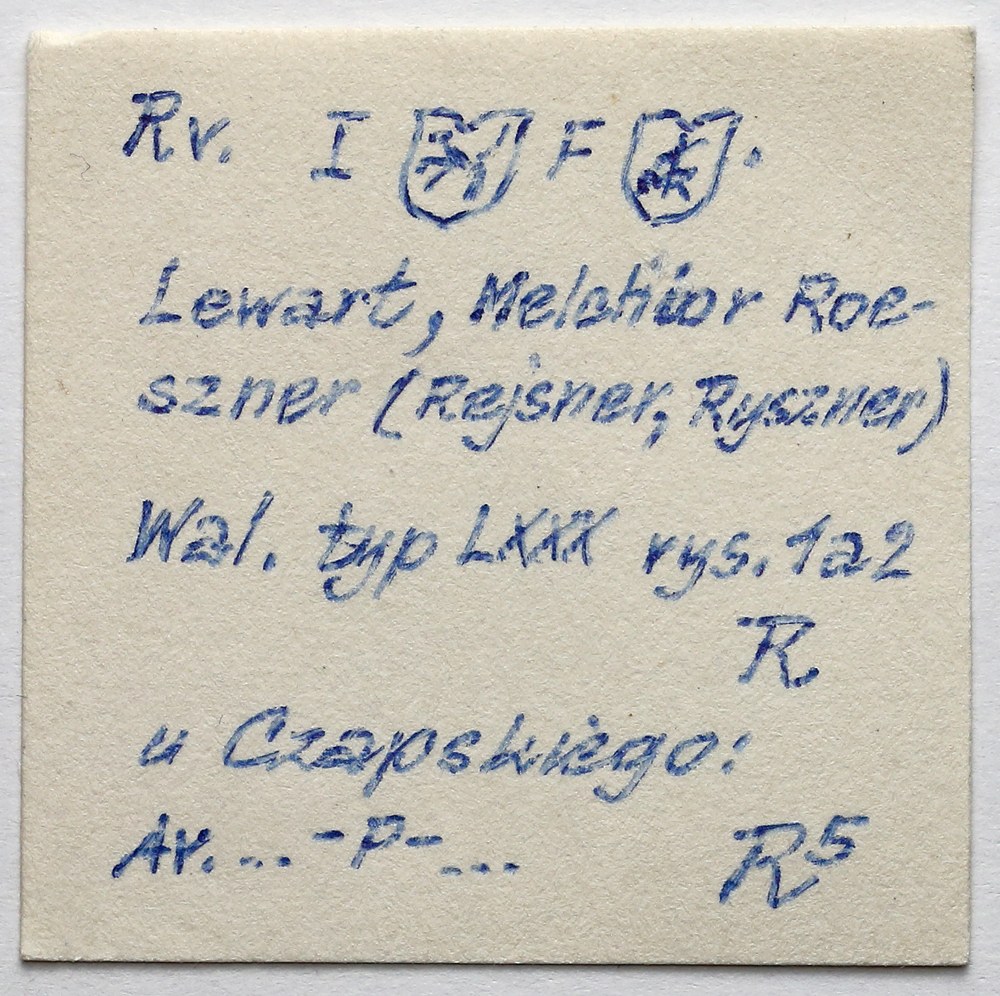 Rv. I F .
Lewart, Melchior Roe-
szner (Rejsner, Ryszner)
Wal. typ LXXX rys. 1a2
R
u Czapskiego:
Av. ... -P- ... R5